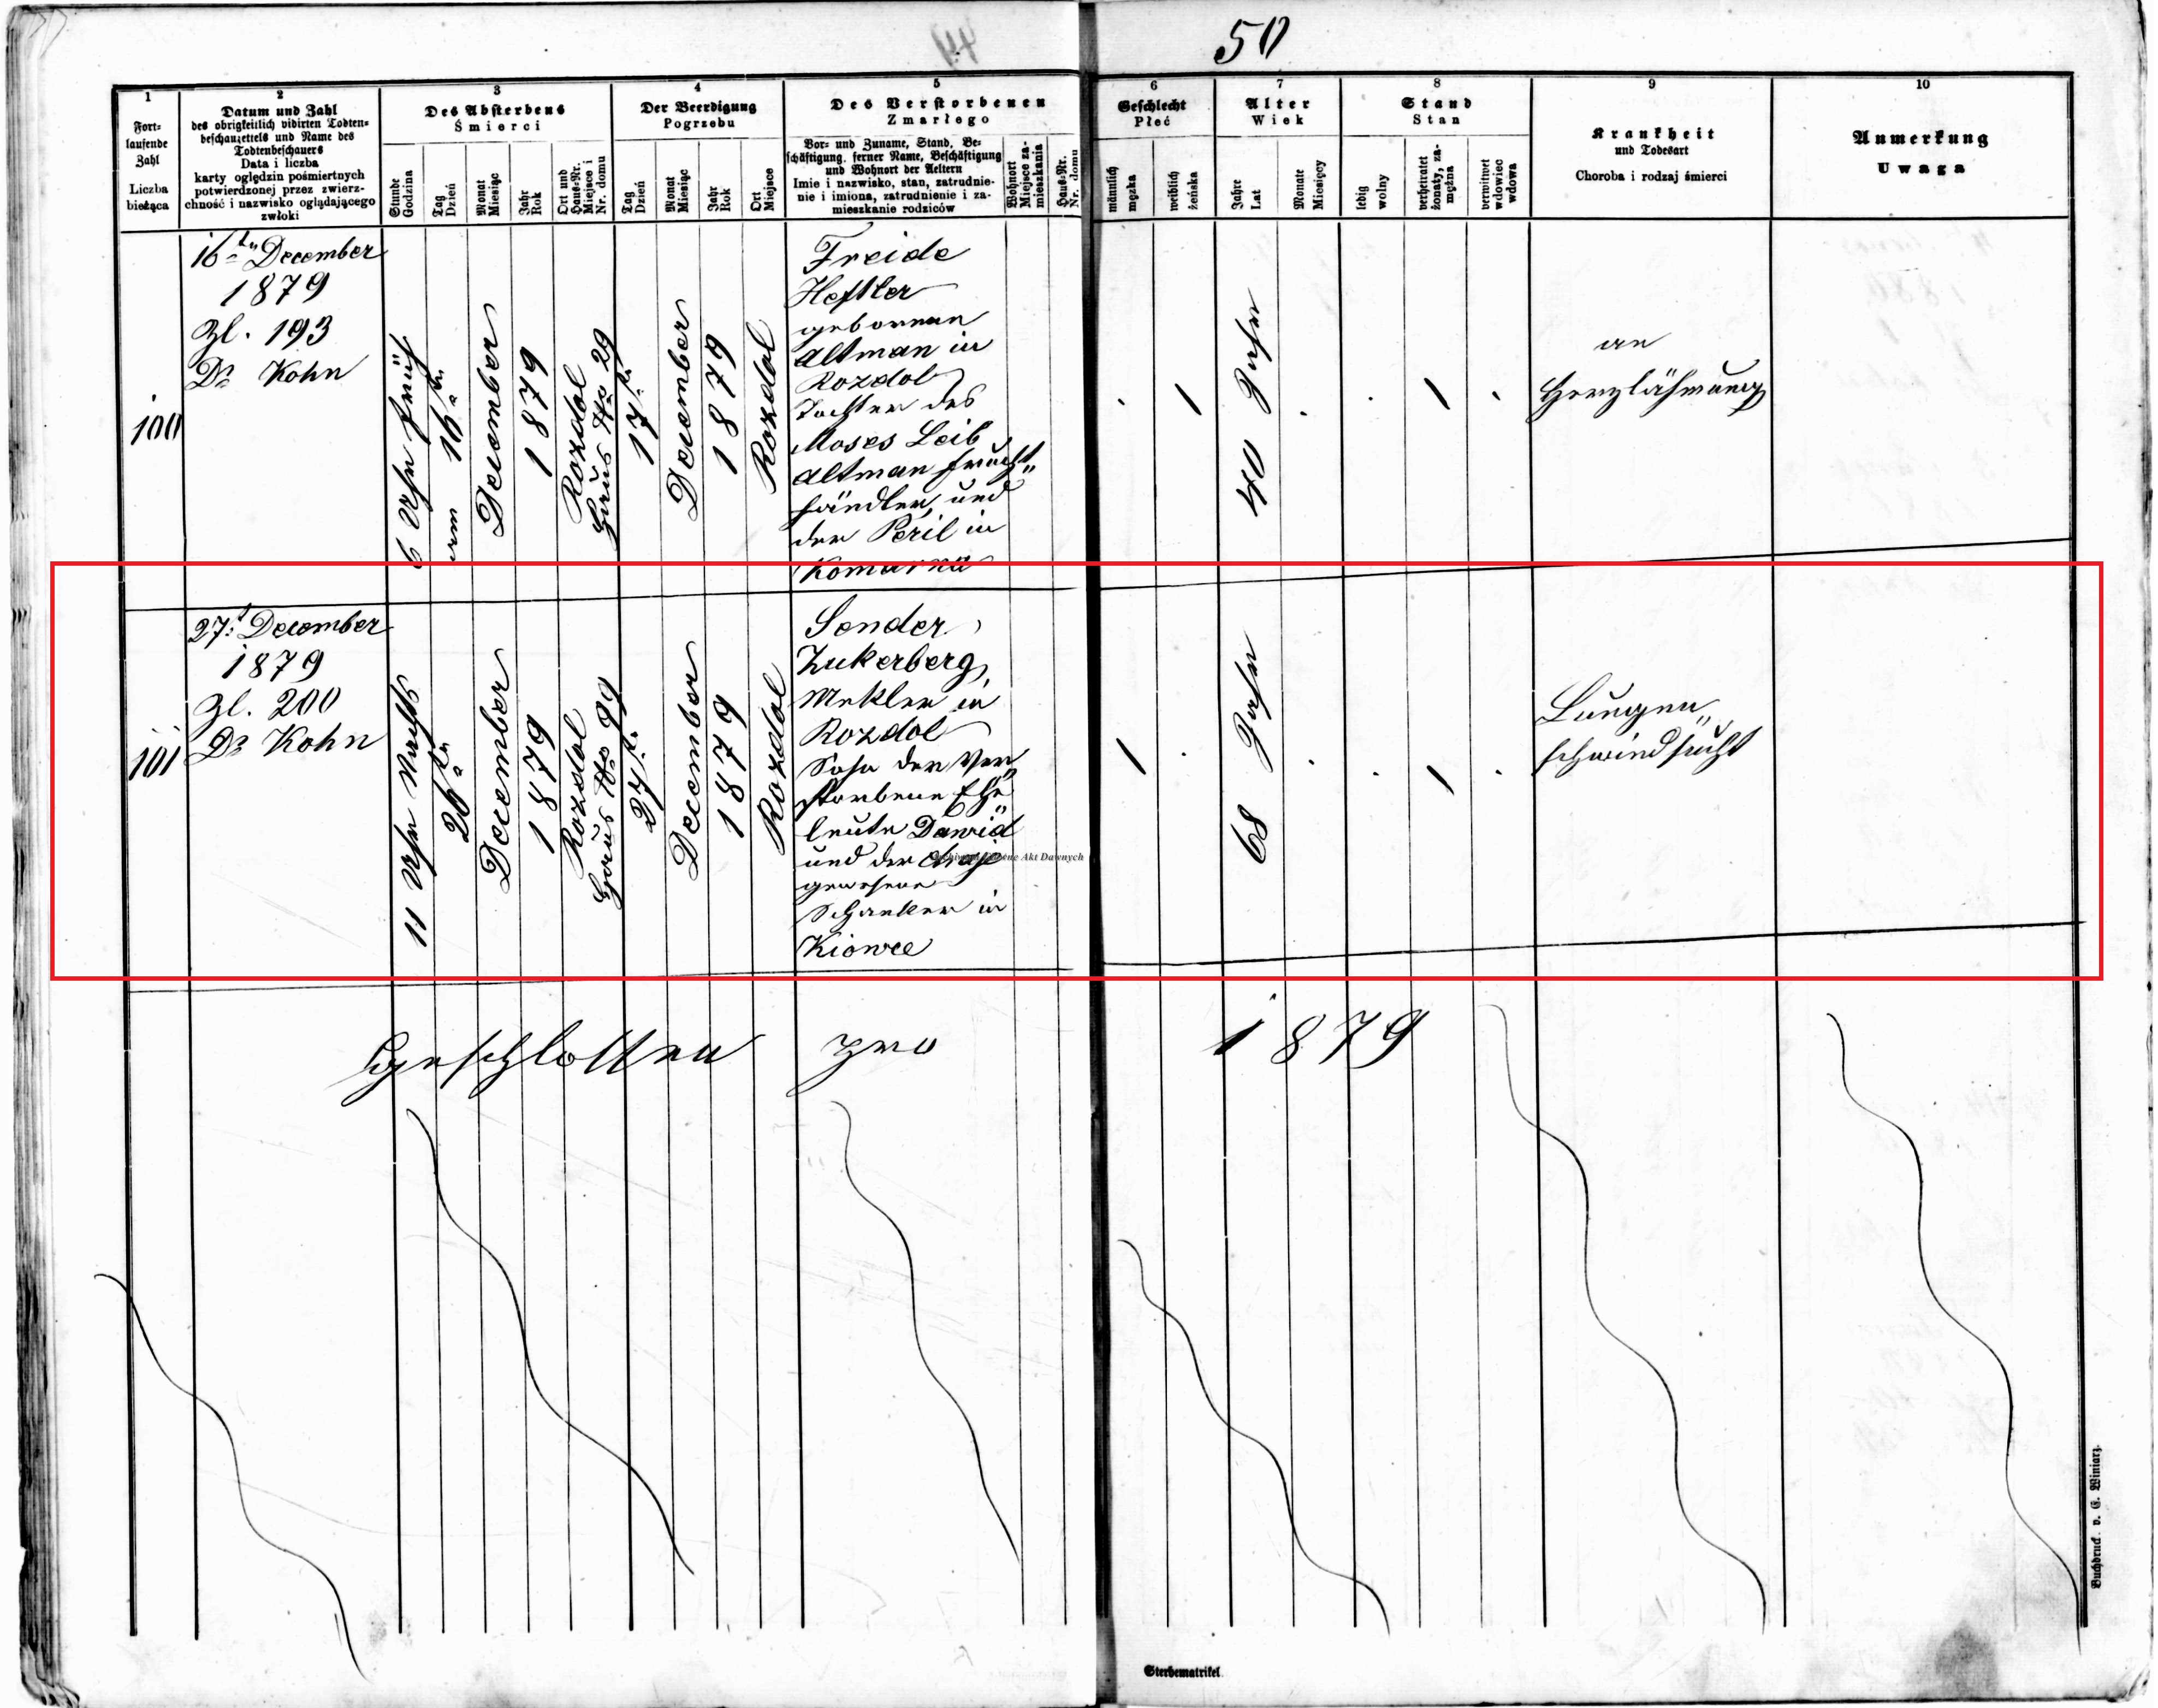 44
50
1
Fort-
laufende
Zahl
Liczba
bieżąca
2
Datum und Zahl
des obrigkeitlich vidirten Todten-
beschauzettels und Name des
Todtenbeschauers
Data i liczba
karty oględzin pośmiertnych
potwierdzonej przez zwierz-
chność i nazwisko oglądającego
zwłoki
3
Des Absterbens
Śmierci
Stunde
Godzina
Tag
Dzień
Monat
Miesiąc
Jahr
Rok
Ort und
Haus-Nr.
Miejsce i
Nr. domu
4
Der Beerdigung
Pogrzebu
Tag
Dzień
Monat
Miesiąc
Jahr
Rok
Ort
Miejsce
5
Des Verstorbenen
Zmarłego
Vor- und Zuname, Stand, Be-
schäftigung, ferner Name, Beschäftigung
und Wohnort der Aeltern
Imie i nazwisko, stan, zatrudnie-
nie i imiona, zatrudnienie i za-
mieszkanie rodziców
Wohnort
Miejsce za-
mieszkania
Haus-Nr.
Nr. domu
6
Geschlecht
Płeć
männlich
męzka
weiblich
żeńska
7
Alter
Wiek
Jahre
Lat
Monate
Miesięcy
8
Stand
Stan
ledig
wolny
verheiratet
żonaty, za-
mężna
verwitwet
wdowiec
wdowa
9
Krankheit
und Todesart
Choroba i rodzaj śmierci
10
Anmerkung
Uwaga
100
16tn December
1879
Zl. 193
Dr Kohn
6 Uhr früh
am 16tn
December
1879
Rozdol
Haus No 29
17tn
December
1879
Rozdol
Freide
Heftler
geborenen
Altman in
Rozdol
Tochter des
Moses Leib
Altman Frucht„
händler, und
der Peril in
Komarno
1
40 Jahr
1
an
Herzlähmung
101
27t December
1879
Zl. 200
Dr Kohn
11 Uhr Nachts
26tn
December
1879
Rozdol
Haus No 99
27tn
December
1879
Rozdol
Sender
Zukerberg,
Mekler in
Rozdol
Sohn der Ver„
storbene Ehe„
leute Dawid
und der Chaje
gewesene
Schanker in
Kiowce
1
68 Jahr
1
Lungen„
schwindsucht
Archiwum Główne Akt Dawnych
Geschlossen pro 1879
Sterbematrikel.
Buchdruck. v. E. Winiarz.